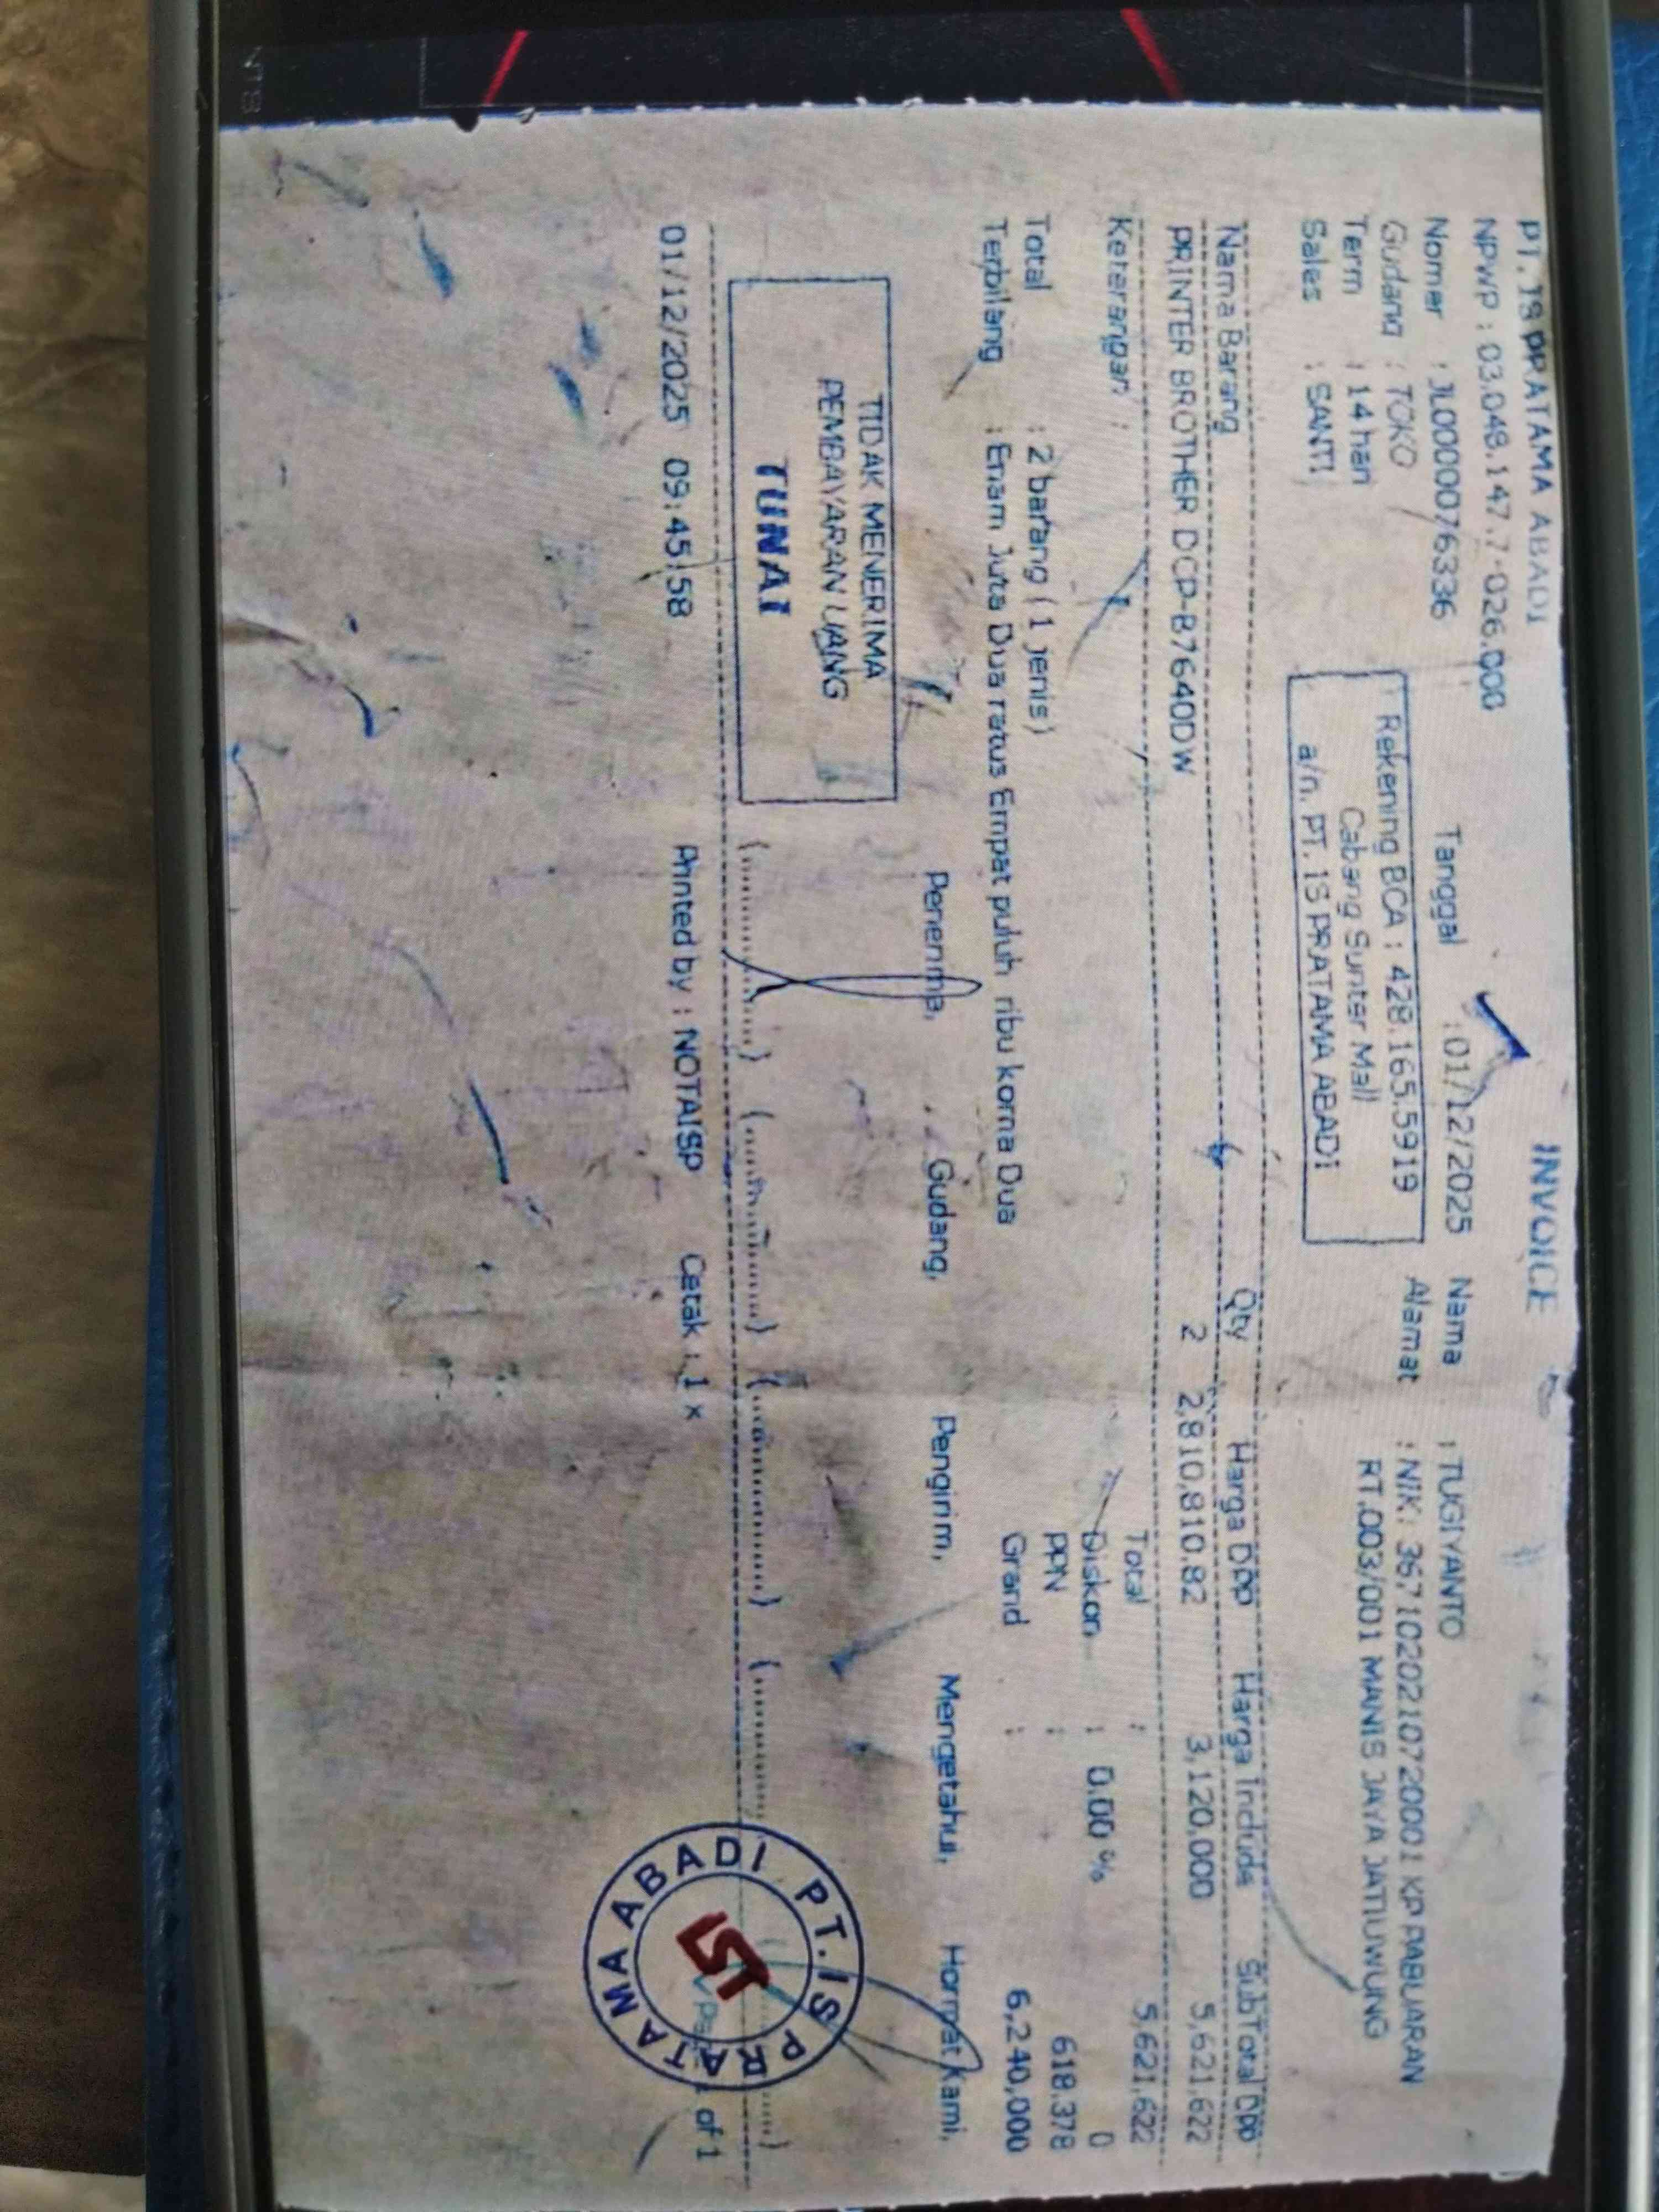 INVOICE
PT. IS PRATAMA ABADI
NPWP : 03.048.147.7-026.000
Nomer : JL0000076336
Tanggal : 01/12/2025
Nama : TUGIYANTO
Gudang : TOKO
Alamat : NIK: 3671020210720001 KP PABUARAN
RT.003/001 MANIS JAYA JATIUWUNG
Term : 14 hari
Sales : SANTI
Rekening BCA : 428.165.5919
Cabang Sunter Mall
a/n. PT. IS PRATAMA ABADI
Nama Barang Qty Harga Dpp Harga Include SubTotal Dpp
PRINTER BROTHER DCP-B7640DW 2 2,810,810.82 3,120,000 5,621,622
Keterangan :
Total : 5,621,622
Diskon : 0.00 % 0
PPN : 618,378
Grand : 6,240,000
Total : 2 barang (1 jenis)
Terbilang : Enam Juta Dua ratus Empat puluh ribu koma Dua
Penerima, Gudang, Pengirim, Mengetahui, Hormat Kami,
TIDAK MENERIMA
PEMBAYARAN UANG
TUNAI
PT. IS PRATAMA ABADI
01/12/2025 09:45:58 Printed by : NOTAISP Cetak : 1 x of 1